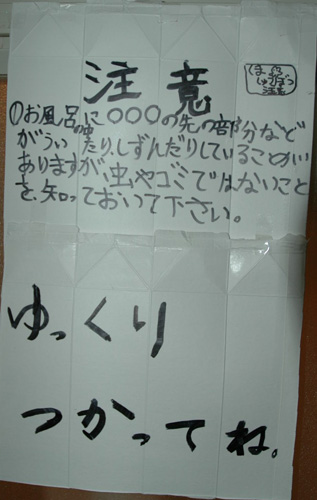 注意
①お風呂の中に○○○の先の部分など
がういたり、しずんだりしていることが
ありますが、虫やゴミではないこと
を、知っておいて下さい。
ゆっくり
つかってね。